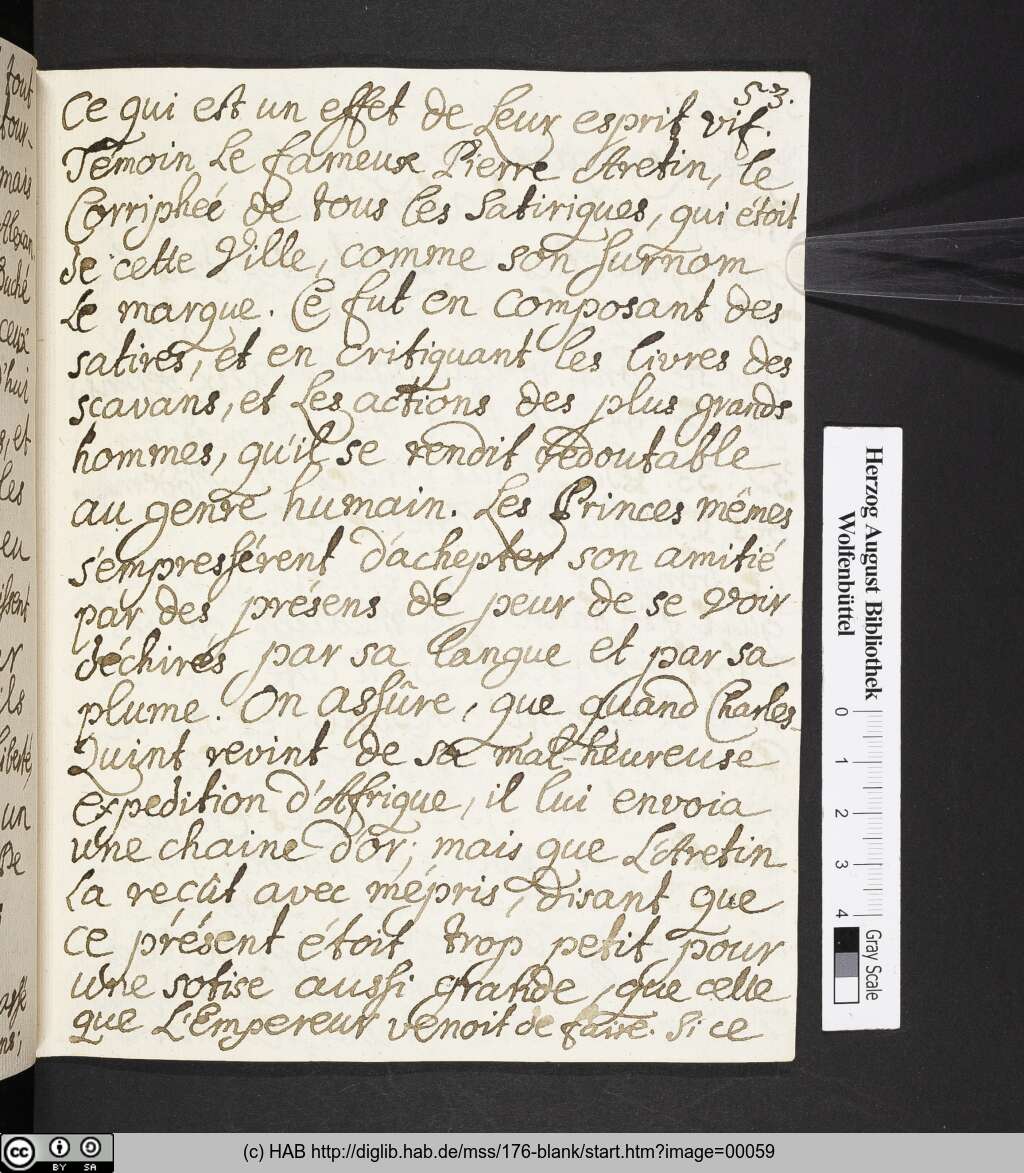 53.
Ce qui est un effet de Leur esprit vif.
Témoin Le fameux Pierre Aretin, le
Corriphée de tous les Satiriques, qui étoit
de cette Ville, comme son surnom
Le marque. Ce fut en composant des
satires, et en critiquant les livres des
scavans, et Les actions des plus grands
hommes, qu'il se rendit redoutable
au genre humain. Les Princes mêmes
s'empressérent d'achepter son amitié
par des présens de peur de se voir
déchirés par sa langue et par sa
plume. On assûre, que quand Charles
Quint revint de sa mal-heureuse
expedition d'Afrique, il lui envoia
une chaine d'or; mais que L'Aretin
La reçût avec mépris, disant que
ce présent étoit trop petit pour
une sotise aussi grande, que celle
que L'Empereur venoit de faire. Si ce
tout
tour-
mais
Alexan
Duché
ceux
d'hui
s, et
les
en
issent
er
ils
liberté,
un
De
Herzog August Bibliothek
Wolfenbüttel
0 1 2 3 4
Gray Scale
cc BY SA
(c) HAB http://diglib.hab.de/mss/176-blank/start.htm?image=00059